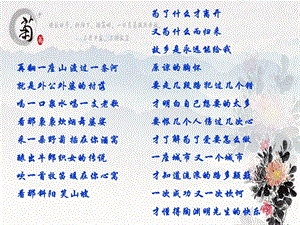 菊
再翻一座山渡过一条河
就是外公外婆的村落
喝一口泉水喝一支老歌
看那袅袅炊烟舞婆娑
采一朵野菊插在你酒窝
眼出牛郎织女的传说
吹一首牧笛暖在你心窝
看那斜阳笑山坡
为了什么才离开
又为什么而归来
故乡是永远能给我
原谅的胸怀
要走几段路把过几个错
才明白自己想要的太多
要恨几个人伤过几次心
才了解为了爱要怎么做
一座城市又一个城市
才知道流浪的路多颠簸
一次成功又一次蚀何
才懂得陶渊明先生的快乐